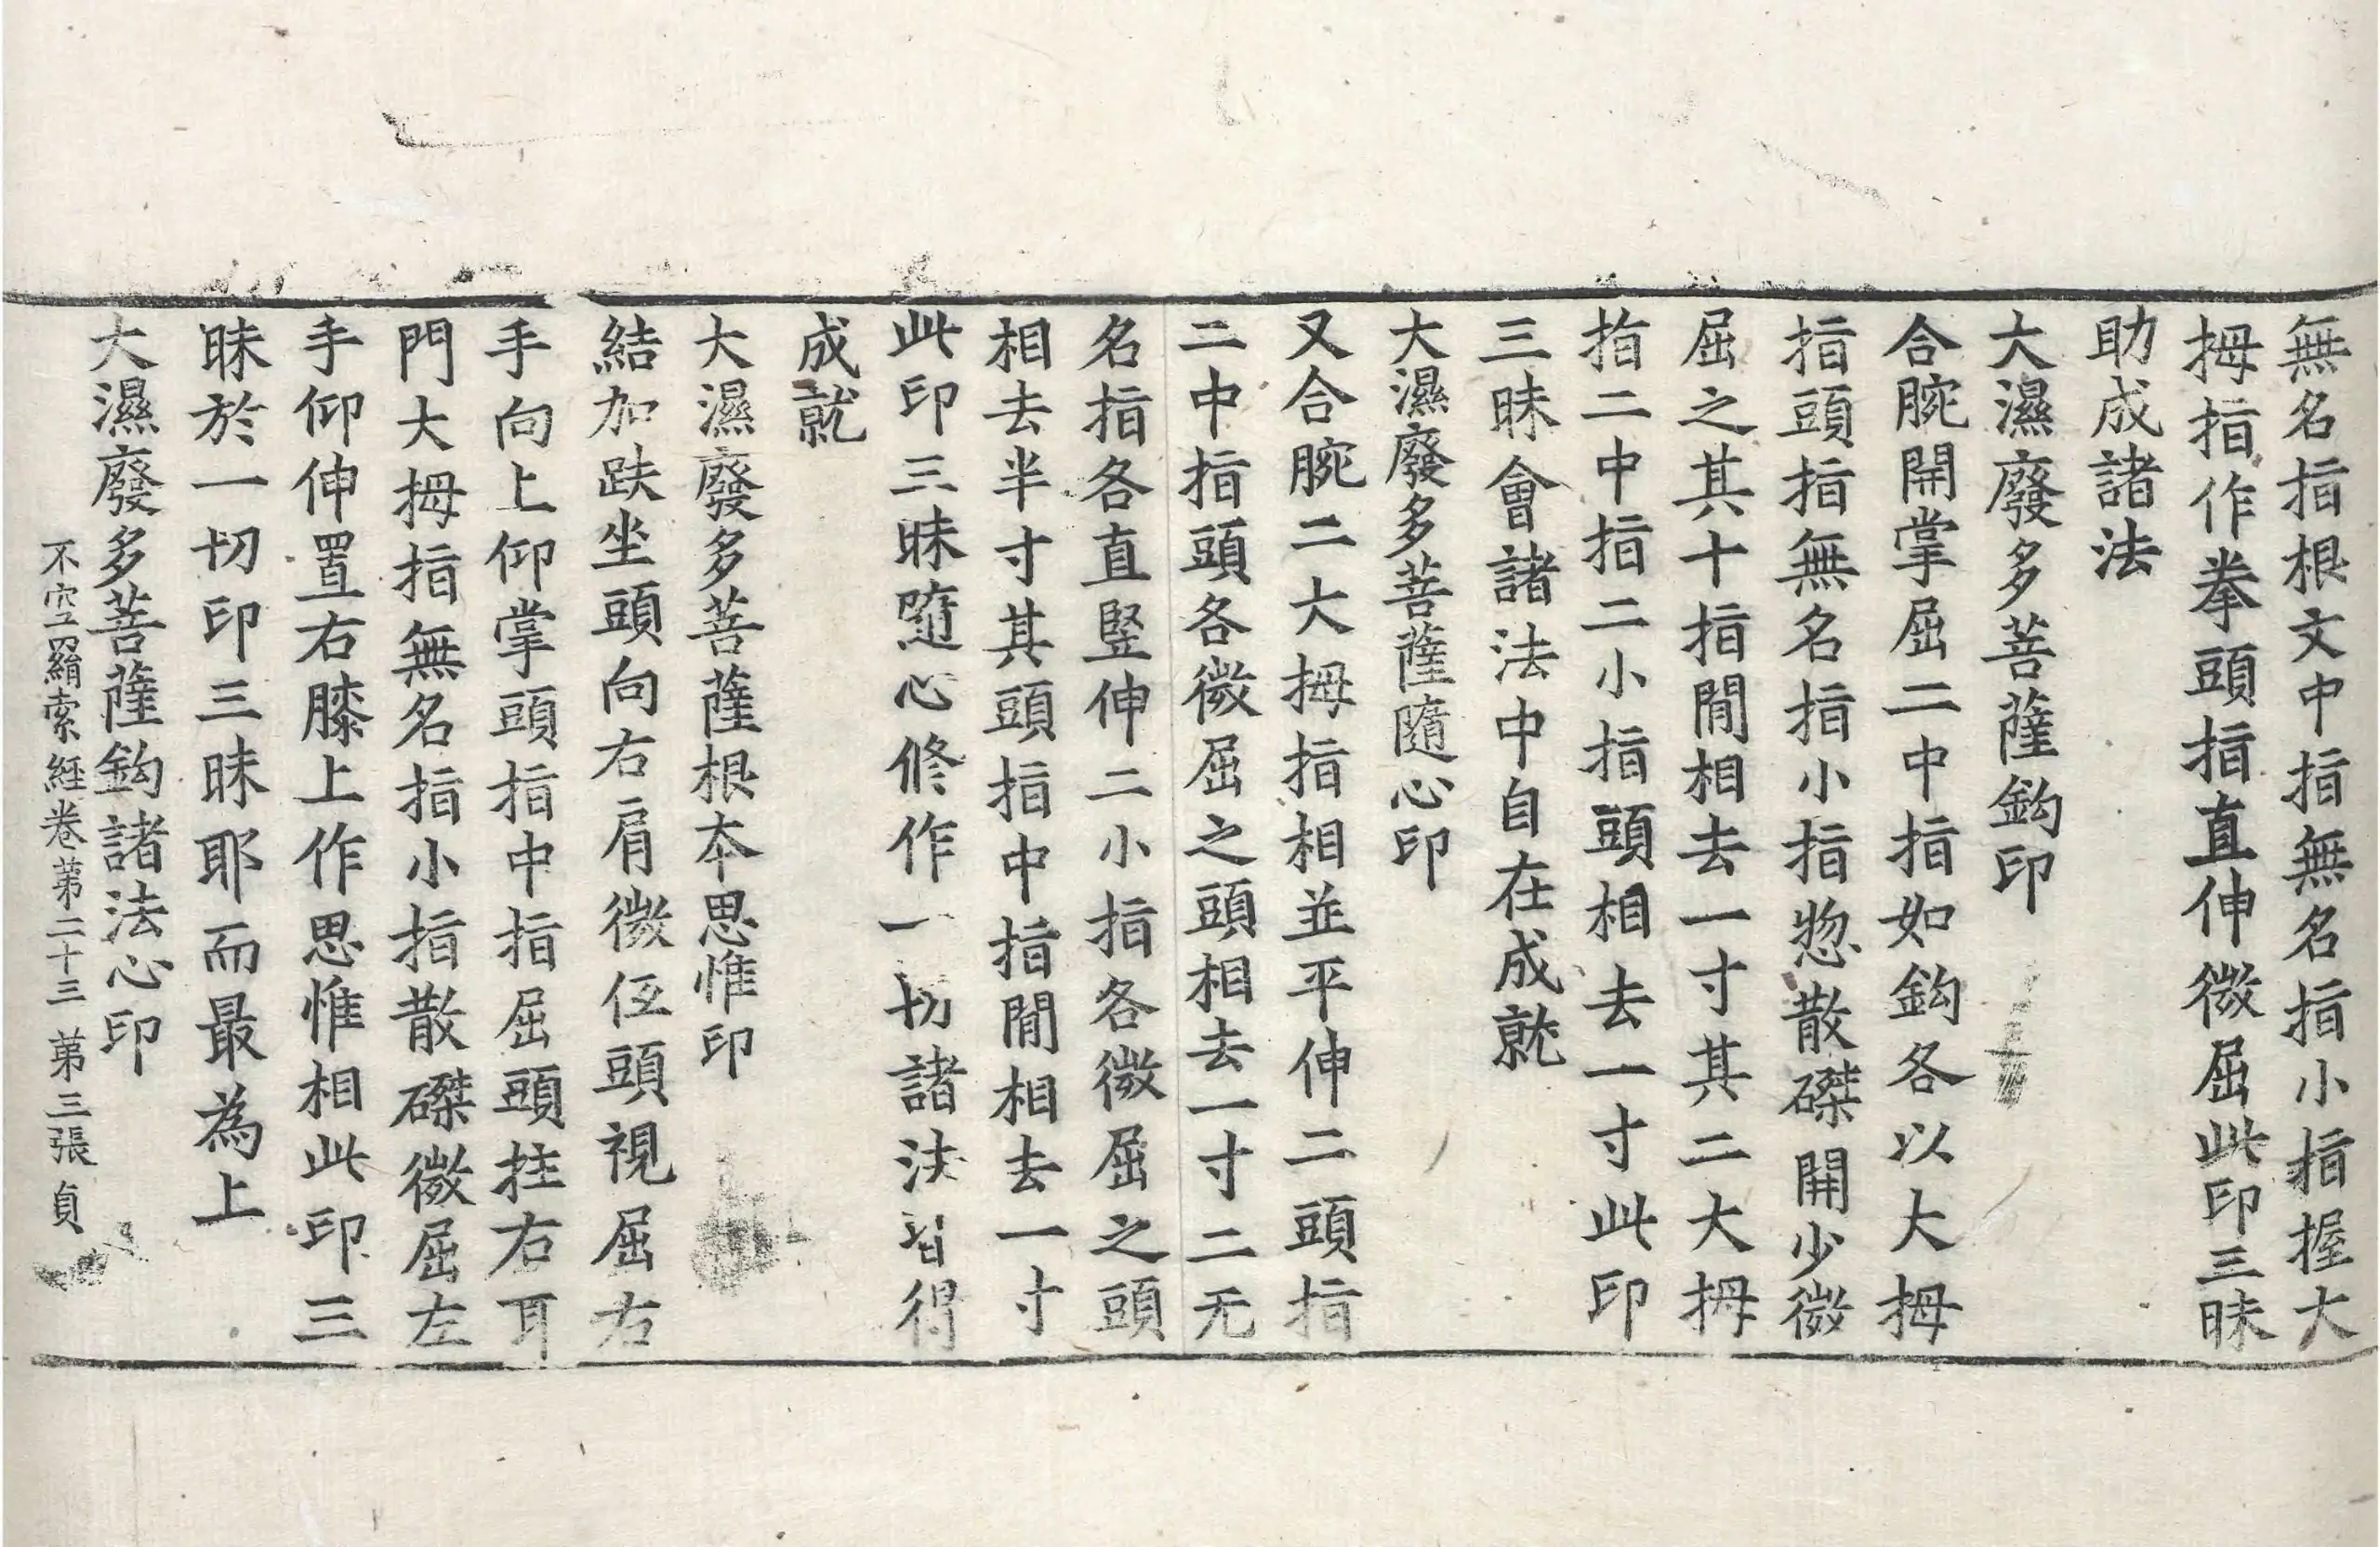 無名指根文中指無名指小指握大
拇指作拳頭指直伸微屈此印三昧
助成諸法
大濕廢多菩薩鈎印
合腕開掌屈二中指如鈎各以大拇
指頭指無名指小指惣散磔開少微
屈之其十指閒相去一寸其二大拇
指二中指二小指頭相去一寸此印
三昧會諸法中自在成就
大濕廢多菩薩隨心印
又合腕二大拇指相並平伸二頭指
二中指頭各微屈之頭相去一寸二无
名指各直竪伸二小指各微屈之頭
相去半寸其頭指中指閒相去一寸
此印三昧隨心修作一切諸法皆得
成就
大濕廢多菩薩根本思惟印
結加趺坐頭向右肩微低頭視屈右
手向上仰掌頭指中指屈頭拄右耳
門大拇指無名指小指散磔微屈左
手仰伸置右膝上作思惟相此印三
昧於一切印三昧耶而最為上
大濕廢多菩薩鈎諸法心印
不空羂索經卷苐二十三 苐三張 貞